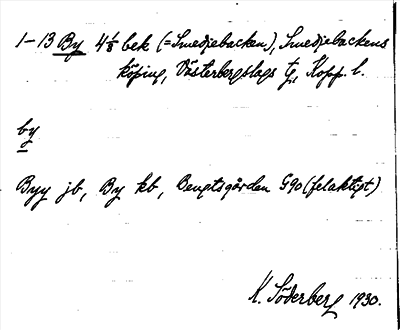 1–13 By 4 1/8 bek (= Smedjebacken), Smedjebackens
köping, Västerbergslags tg, Kopp. l.
by
Byy jb, By kb, Bengtsgården G90 (felaktigt)
K. Söderberg 1930.